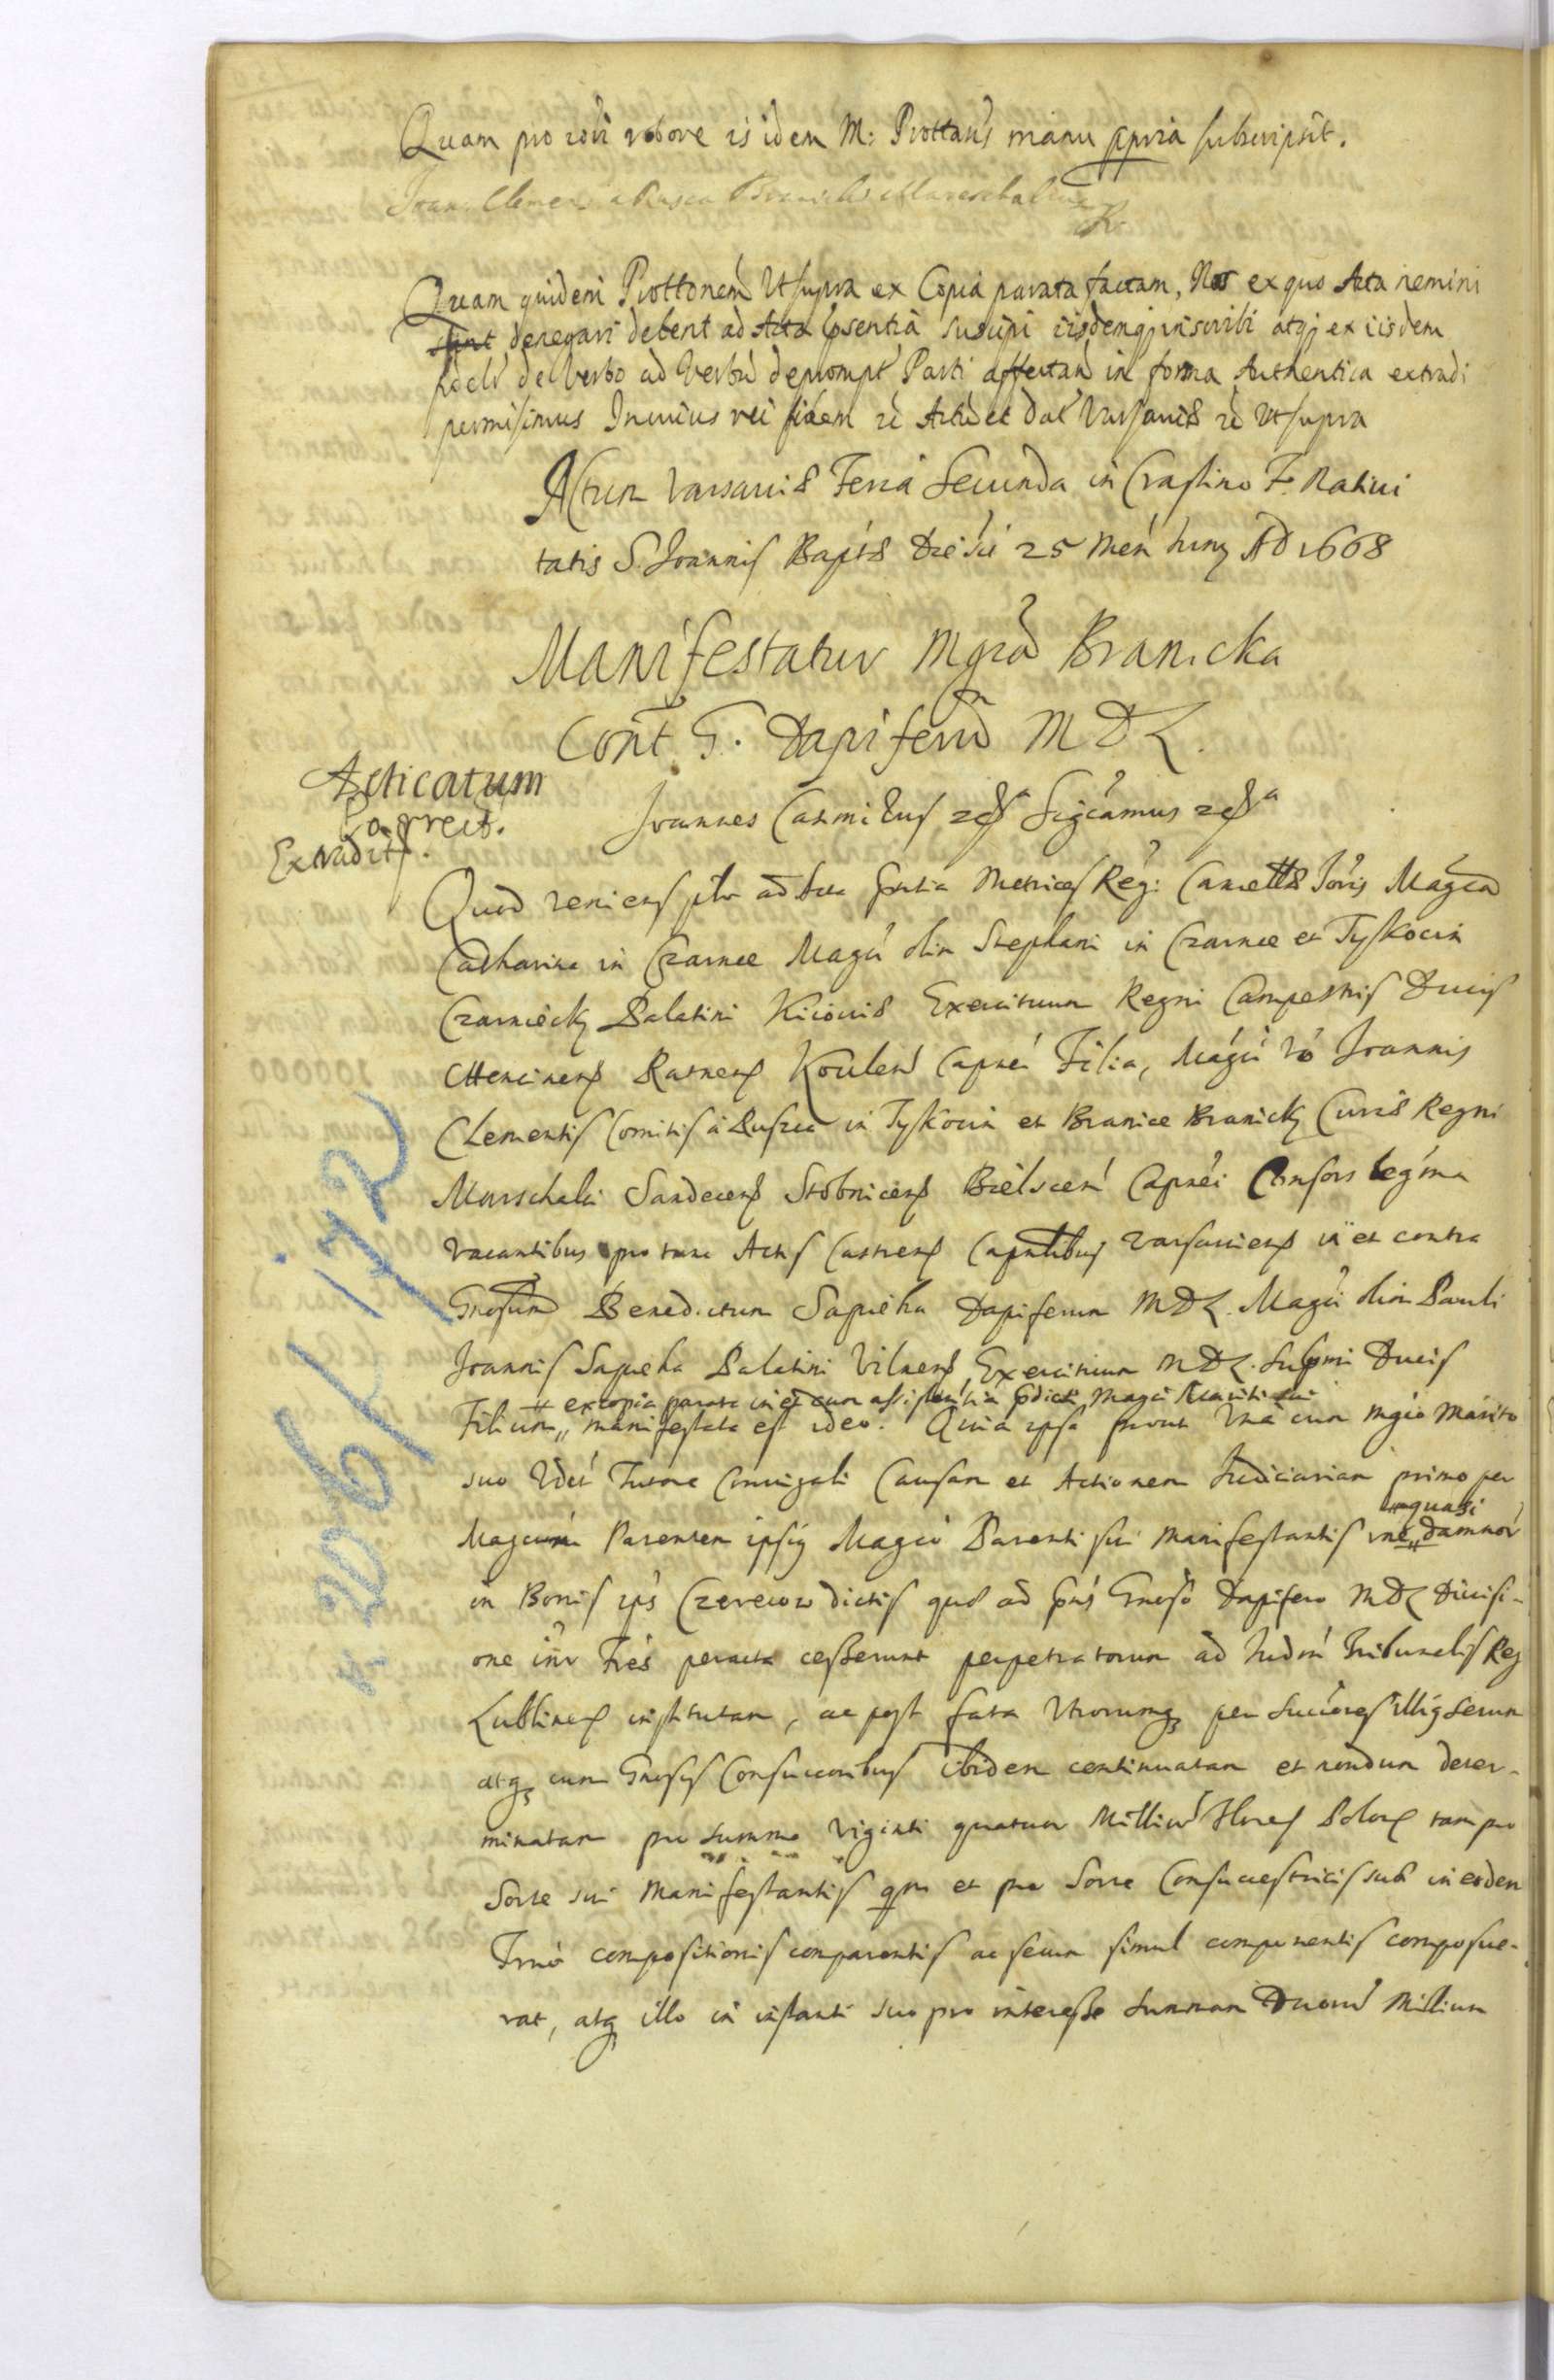 Quam pro rei robore is idem M: Prottans manu ppria subscripsit.
Joan Clemens a Rusca Branicki Mareschalcus
Quam quidem Prottonem Ut supra ex Copia parata factam, Nos ex quo Acta nemini
sunt denegari debent ad Acta psentia suscipi iisdemq; inscribi atq; ex iisdem
de verbo ad verbum deprompt Parti affectan in forma Authentica extradi
permisimus In cuius rei fidem Actu et Dat Varsaviæ Ut supra
Actum Varsaviæ Feria Secunda in Crastino F. Nativi
tatis S. Joannis Bapts Die sci 25 Men Juny AD 1668
Manifestatur Mgca Branicka
Cont G. Dapiferu MDL.
Acticatum
Correct.
Extradit.
Joannes Casimirus Sigcamus
Quod veniens plr ad Acta pntia Metrices Reg: Cancellæ Joris Magca
Catharina in Czarnce Magci olim Stephani in Czarnce et Tyskocin
Czarniecky Palatini Kioviæ Exercituum Regni Campestris Ducis
Ratnens Kovelen Capnei Filia, Magci vo Joannis
Clementis Comitis à Ruszcza in Tyskocin et Branice Branicky Curiæ Regni
Marschalci Sandecens Stobnicens Bielscen Capnei Consors legima
vacantibus pro tunc Actis Castrens Capnlibus Varsaviens in et contra
Gnosum Benedictum Sapieha Dapiferum MDL. Magci olim Pauli
Joannis Sapieha Palatini Vilnens Exercituum MDL. Supmi Ducis
" ex copia parata in et cum assistentia pdicti Magci Mariti sui
Filium,, manifestata est ideo. Quia ipsa prout Una cum mgco Marito
suo Tutore Conjugali Causam et Actionem Judiciariam primo per
quasi
Magcum Parentem ipsig Magco Parenti sui manifestantis damnor
in Bonis ips Czerecow dictis quæ ad pns Gnoso Dapifero MDL Divisi-
one intr Fres peracta cesserunt perpetratorum ad Judm Tribunalis Reg
Lublinens institutam, ac post fata Utrorumq; per Succores illig secum
atq; cum Gnosis Consuccoribus ibidem continuatam et nondum deter-
minatam pro summa viginti quatuor Milliu Flnes Polon tam pro
Sorte sui Manifestantis qm et pro Sorte Consuccestricis suæ in eodem
Trno compositionis comparentis ac secum simul componentis composue-
rat, atq; illo in instanti suo pro interesse Summam Duoru Millium
1206/172